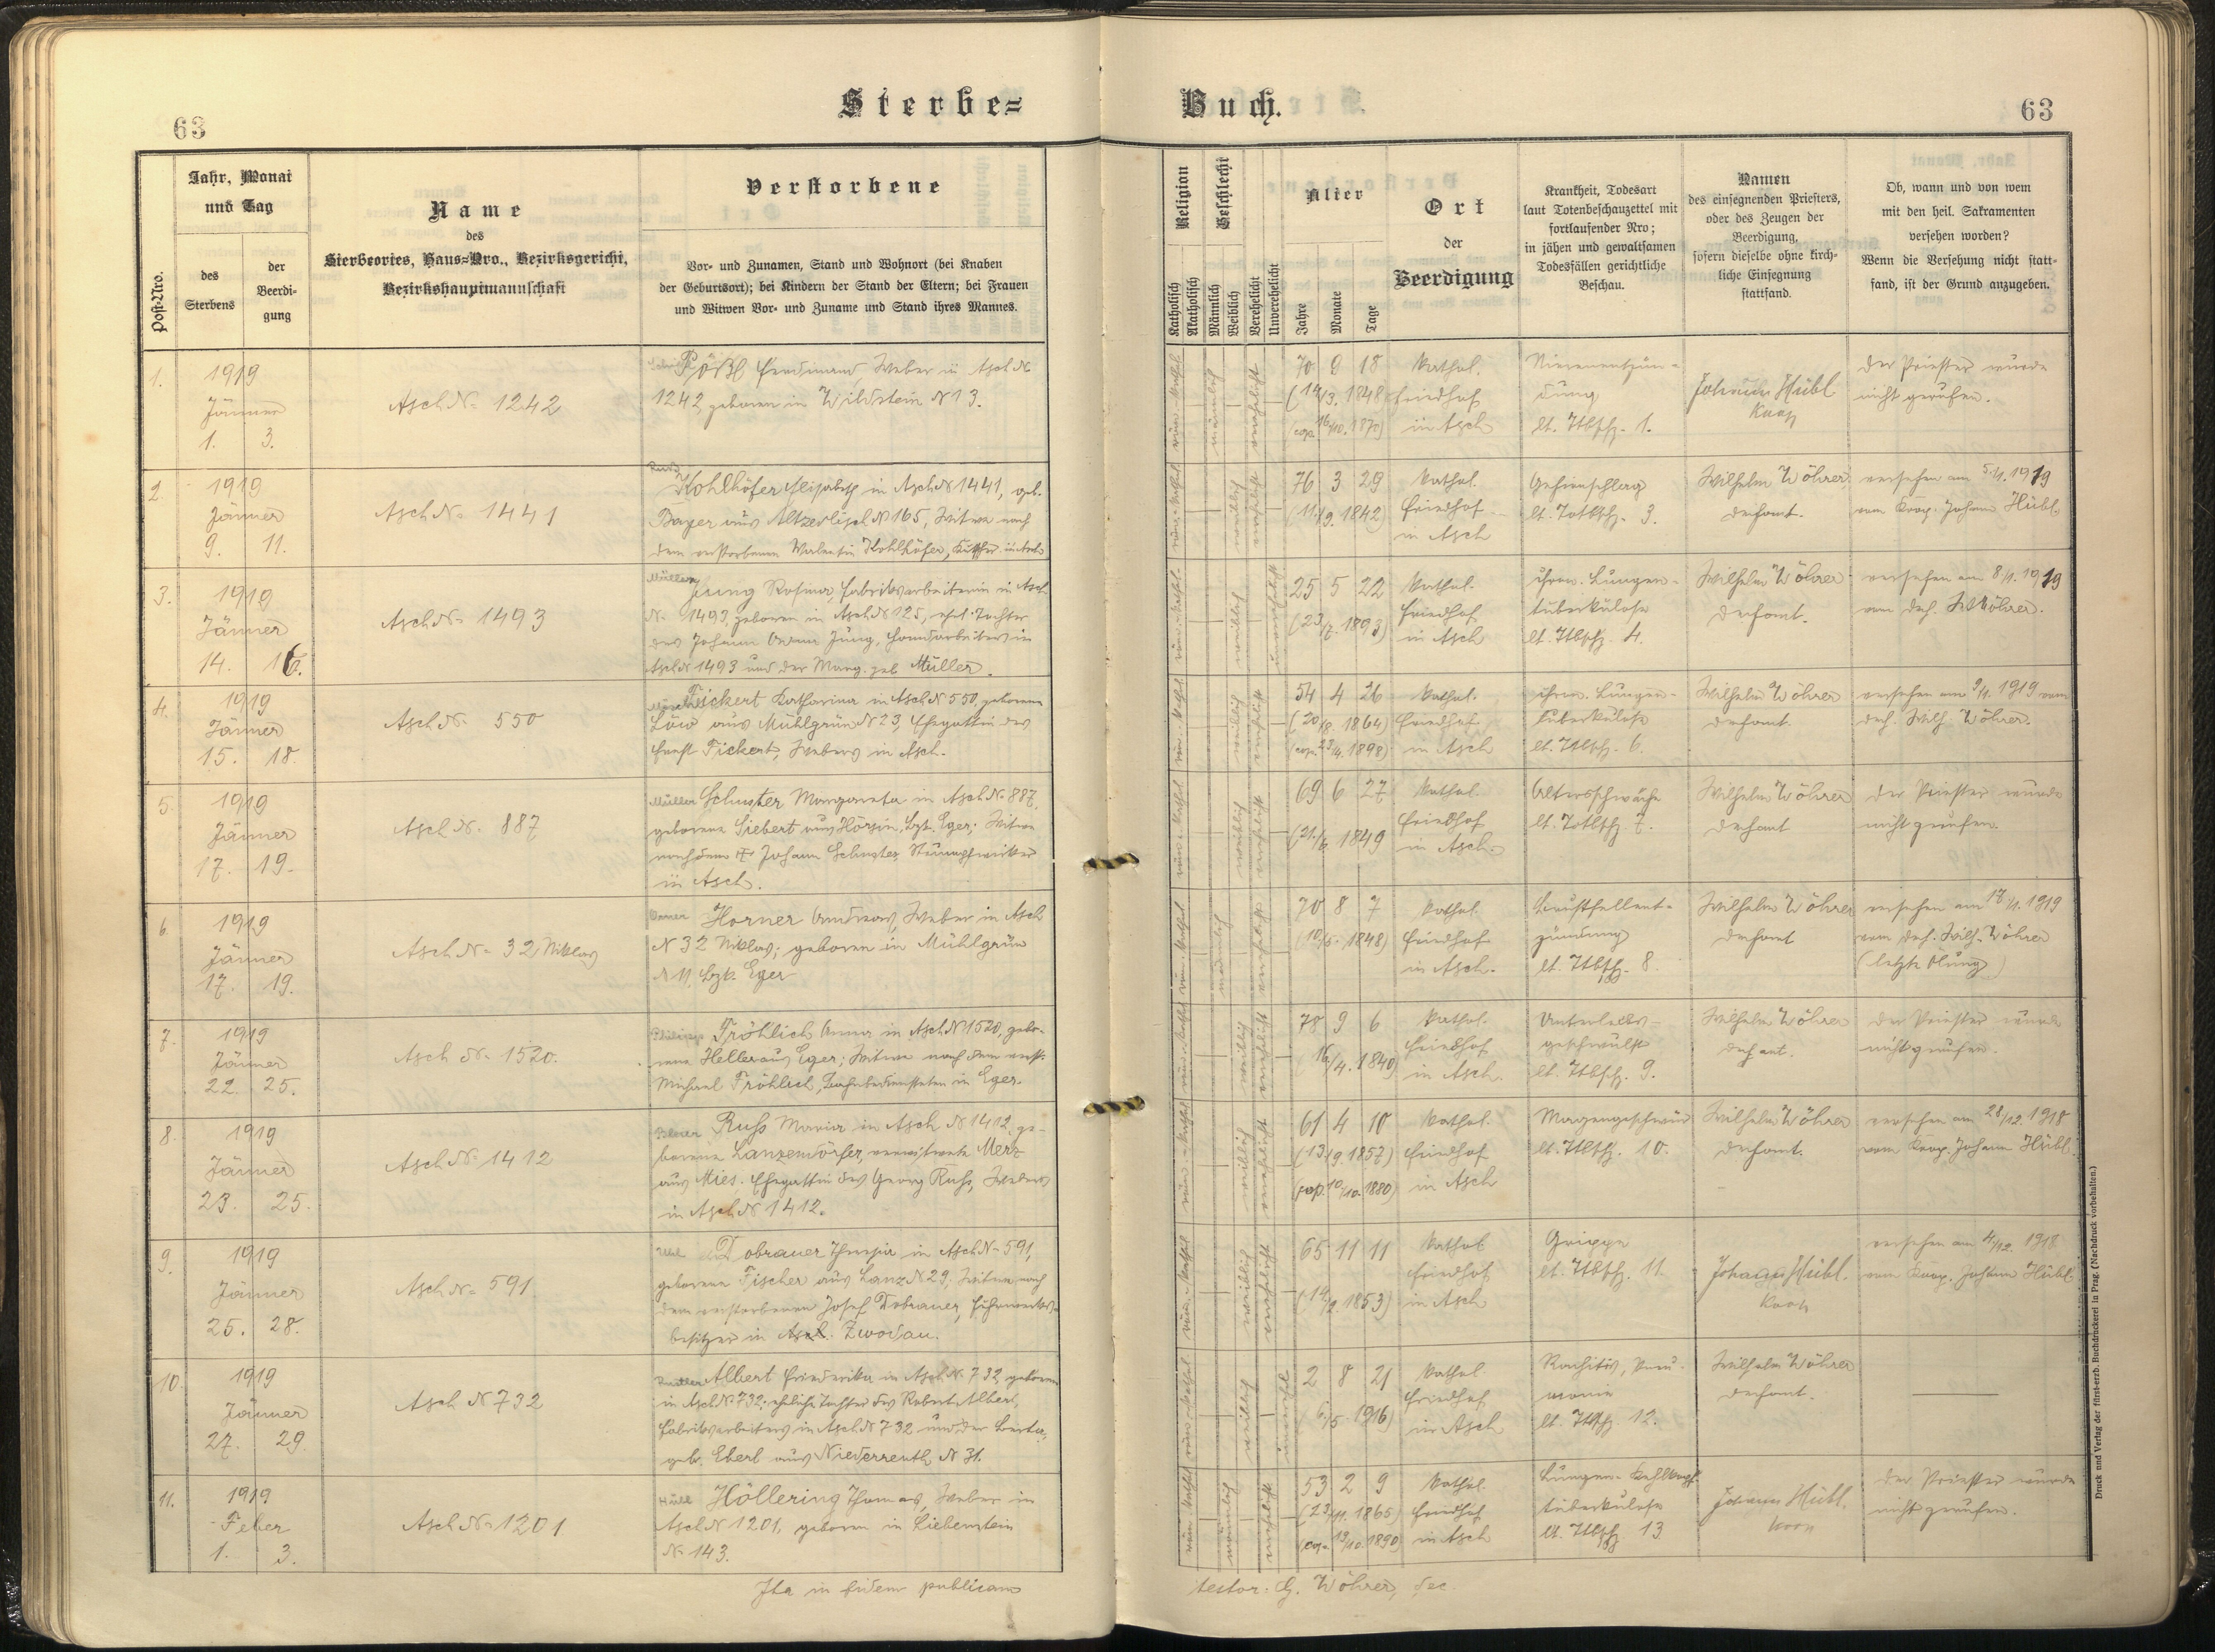 63
Sterbe=
Buch.
63
Post-Nro.
Jahr, Monat
und Tag
des
Sterbens
der
Beerdi-
gung
Name
des
Sterbeortes, Haus=Nro., Bezirksgericht,
Bezirkshauptmannschaft
Verstorbene
Vor- und Zunamen, Stand und Wohnort (bei Knaben
der Geburtsort); bei Kindern der Stand der Eltern; bei Frauen
und Witwen Vor- und Zuname und Stand ihres Mannes.
Religion
Katholisch
Akatholisch
Geschlecht
Männlich
Weiblich
Verehelicht
Unverehelicht
Alter
Jahre
Monate
Tage
Ort
der
Beerdigung
Krankheit, Todesart
laut Totenbeschauzettel mit
fortlaufender Nro;
in jähen und gewaltsamen
Todesfällen gerichtliche
Beschau.
Namen
des einsegnenden Priesters,
oder des Zeugen der
Beerdigung,
sofern dieselbe ohne kirch-
liche Einsegnung
stattfand.
Ob, wann und von wem
mit den heil. Sakramenten
versehen worden?
Wenn die Versehung nicht statt-
fand, ist der Grund anzugeben.
1.
1919
Jänner
1. 3.
Asch N= 1242
Pößl Ferdinand, Weber in Asch N=
1242, geboren in Wildstein N 13.
männlich
verehelicht
70 9 18
(14/3. 1848
(cop. 16/10. 1870)
Kathol.
Friedhof
in Asch
Nierenentzün-
dung
lt. Ttbsch. 1.
Johann Hübl
Koop
Der Priester wurde
nicht gerufen.
2.
1919
Jänner
9. 11.
Asch N= 1441
Kohlhöfer Elisabeth in Asch N 1441, geb.
Bayer aus Altzedlisch N 165, Witwe nach
dem verstorbenen Valentin Kohlhöfer, Kutscher in Asch
weiblich
verehelicht
76 3 29
(11/9. 1842)
Kathol.
Friedhof
in Asch
Gehirnschlag
lt. Totbsch. 3.
Wilhelm Wöhrer,
Dechant.
versehen am 5./1. 1919
vom Koop. Johann Hübl
3.
1919
Jänner
14. 16.
Asch N= 1493
Müller
Jung Rosina, Fabriksarbeiterin in Asch
N= 1493, geboren in Asch N 125, ehel. Tochter
des Johann Adam Jung, Handarbeiters in
Asch N 1493 und der Marg. geb. Müller.
weiblich
unverehelicht
25 5 22
(23/7. 1893)
Kathol.
Friedhof
in Asch
chron. Lungen-
tuberkulose
lt. Ttbsch. 4.
Wilhelm Wöhrer
Dechant.
versehen am 8/1. 1919
vom Dech. W. Wöhrer.
4.
1919
Jänner
15. 18.
Asch N= 550
Fickert Katharina in Asch N 550, geborene
Löw aus Mühlgrün N 23, Ehegattin des
Ernst Fickert, Webers in Asch.
weiblich
verehelicht
54 4 26
(20/8. 1864)
(cop. 23/4. 1898)
Kathol.
Friedhof
in Asch
chron. Lungen-
tuberkulose
lt. Ttbsch. 6.
Wilhelm Wöhrer
Dechant.
versehen am 9/1. 1919 vom
Dech. Wilh. Wöhrer.
5.
1919
Jänner
17. 19.
Asch N= 887
Müller
Schuster Margareta in Asch N= 887,
geborene Siebert aus Hörsin, Bzk. Eger; Witwe
nach dem † Johann Schuster, Strumpfwirker
in Asch.
weiblich
verehelicht
69 6 27
(21./6. 1849
Kathol.
Friedhof
in Asch.
Altersschwäche
lt. Totbsch. 7.
Wilhelm Wöhrer
Dechant
Der Priester wurde
nicht gerufen.
6.
1919
Jänner
17. 19.
Asch N= 32 Niklas
Horner Andreas, Weber in Asch
N 32 Niklas; geboren in Mühlgrün
N 11, Bzk. Eger
männlich
verehelicht
70 8 7
(10/5. 1848)
Kathol.
Friedhof
in Asch.
Brustfellent-
zündung
lt. Ttbsch. 8.
Wilhelm Wöhrer
Dechant
versehen am 17/1. 1919
vom Dech. Wilh. Wöhrer
(letzte Ölung)
7.
1919
Jänner
22. 25.
Asch N= 1520.
Fröhlich Anna in Asch N 1520, gebo-
rene Heller aus Eger; Witwe nach dem verst.
Michael Fröhlich, Bahnbediensteten in Eger.
weiblich
verehelicht
78 9 6
(16/4. 1840)
Kathol.
Friedhof
in Asch.
Unterleibs-
geschwulst
lt. Ttbsch. 9.
Wilhelm Wöhrer
Dechant.
Der Priester wurde
nicht gerufen.
8.
1919
Jänner
23. 25.
Asch N= 1412
Russ Maria in Asch N 1412, ge-
borene Lanzendörfer, verwitwete Merz
aus Mies. Ehegattin des Georg Russ, Webers
in Asch N 1412.
weiblich
verehelicht
61 4 10
(13/9. 1857)
(cop. 10/10. 1880)
Kathol.
Friedhof
in Asch
Magengeschwür
lt. Ttbsch. 10.
Wilhelm Wöhrer
Dechant.
versehen am 28/12. 1918
vom Koop. Johann Hübl.
9.
1919
Jänner
25. 28.
Asch N= 591
Dobrauer Theresia in Asch N= 591,
geborene Fischer aus Lanz N 29; Witwe nach
dem verstorbenen Josef Dobrauer, Fuhrwerks-
besitzer in Asch. Zwodau.
weiblich
verehelicht
65 11 11
(14/2. 1853)
Kathol.
Friedhof
in Asch
Grippe
lt. Ttbsch. 11.
Johann Hübl.
Koop
versehen am 4/12. 1918
vom Koop. Johann Hübl
10.
1919
Jänner
27. 29.
Asch N 732
Albert Friederika in Asch N. 732, geboren
in Asch N= 732; eheliche Tochter des Robert Albert,
Fabriksarbeiters in Asch N 732 und der Berta,
geb. Eberl aus Niederreuth N 31.
weiblich
2 8 21
(6/5. 1916)
Kathol.
Friedhof
in Asch
Rachitis, Pneu-
monie
lt. Ttbsch. 12.
Wilhelm Wöhrer
Dechant.
11.
1919
Feber
1. 3.
Asch N= 1201
Höllering Thomas, Weber in
Asch N 1201, geboren in Liebenstein
N= 143.
männlich
verehelicht
53 2 9
(23/11. 1865)
(cop. 13/10. 1890)
Kathol.
Friedhof
in Asch
Lungen- Kehlkopf-
tuberkulose
lt. Ttbsch. 13
Johann Hübl.
Koop
Der Priester wurde
nicht gerufen.
Ita in fidem publicam
testor: G. Wöhrer, dec.
Druck und Verlag der fürst-erzb. Buchdruckerei in Prag. (Nachdruck vorbehalten.)